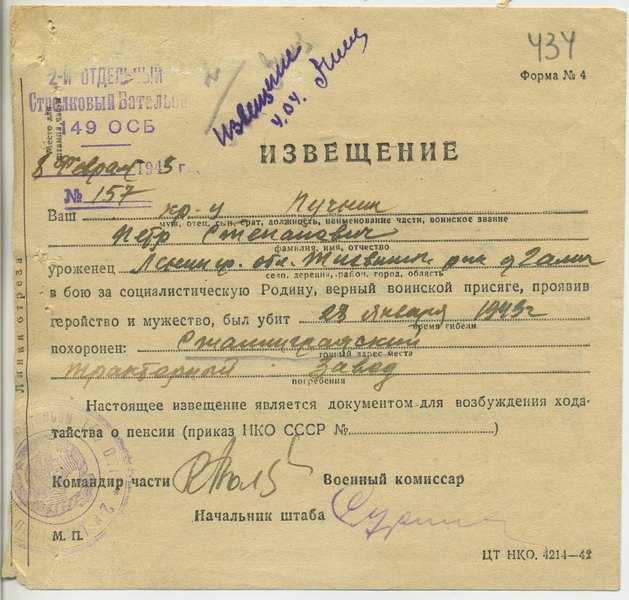 434
Форма № 4
извещение
4.04.
2-й ОТДЕЛЬНЫЙ
Стрелковый Батальон
149 ОСБ
8 Февраля 1943 г.
№ 157
ИЗВЕЩЕНИЕ
Ваш кр-ц Пучнин
муж, отец, сын, брат, должность, наименование части, воинское звание
Петр Степанович
фамилия, имя, отчество
уроженец Ленингр. обл. Тихвинск. р-на д
село, деревня, район, город, область
в бою за социалистическую Родину, верный воинской присяге, проявив
геройство и мужество, был убит 28 января 1943г
время гибели
похоронен: Сталинградский
точный адрес места
тракторный завод
погребения
Настоящее извещение является документом для возбуждения хода-
тайства о пенсии (приказ НКО СССР № )
Командир части Военный комиссар
Начальник штаба
М. П.
ЦТ НКО. 4214—42
Линия отреза